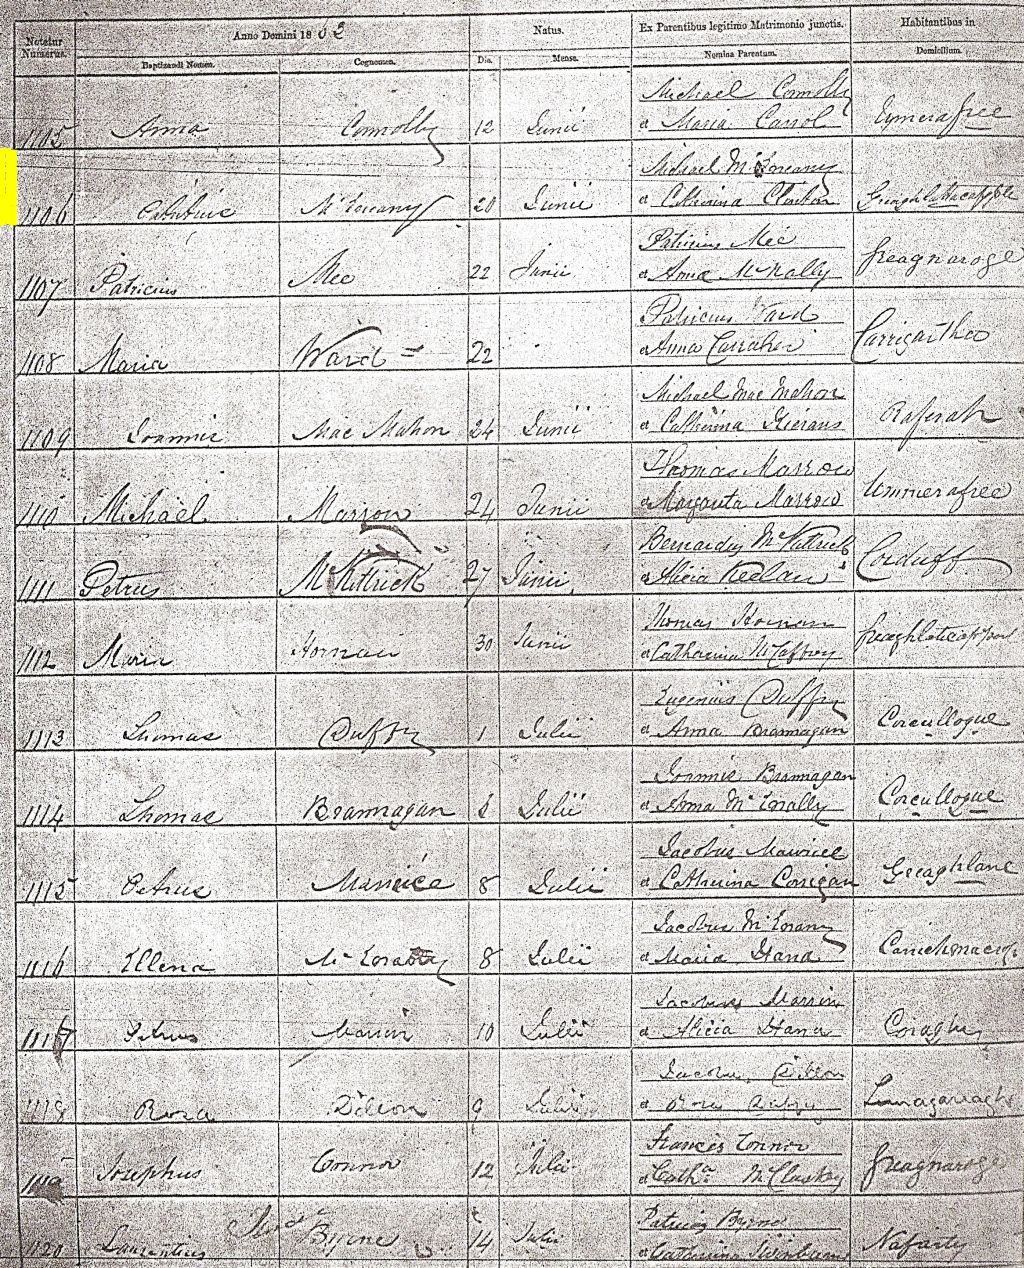 Notetur Numerus.
Anno Domini 1862
Natus.
Ex Parentibus legitimo Matrimonio junctis.
Habitantibus in
Baptizandi Nomen.
Cognomen.
Die.
Mense.
Nomina Parentum.
Domicilium.
Michael Connolly
1105 Anna Connolly 12 Junii et Maria Carrol
Michael
1106 20 Junii et Catherina
Patricius Mee
1107 Patricius Mee 22 Junii et Anna McNally freagnaroge
Patricius Ward
1108 Maria Ward 22 et Anna Carraher
Michael Mac Mahon
1109 Joannis Mac Mahon 24 Junii et Catherina Kierans Raferah
Thomas Marron
1110 Michael Marron 24 Junii et Margarita Marron Ummerafree
Bernardus McKittrick
1111 Petrus McKittrick 27 Junii et Alicia Keelan Corduff
Thomas Hornan
1112 Maria Hornan 30 Junii et Catharina McCaffrey
Eugenius Duffy
1113 Thomas Duffy 1 Julii et Anna Brannagan Corcullogue
Joannis Brannagan
1114 Thomas Brannagan Julii et Anna Corcullogue
Jacobus Maurice
1115 Petrus 8 Julii et Catherina Corrigan Greaghlane
Jacobus
1116 Ellena 8 Julii et Maria Hana
Jacobus Marrin
1117 Petrus Marrin 10 Julii et Alicia Hana Coraghy
Dillon
1118 Rosa Dillon 9 Julii et
Francis Connor
1119 Josephus Connor 12 Julii et Catha McCluskey freagnaroge
Patricius Byrne
1120 Laurentius Byrne 14 Julii et Catherina Nafarty